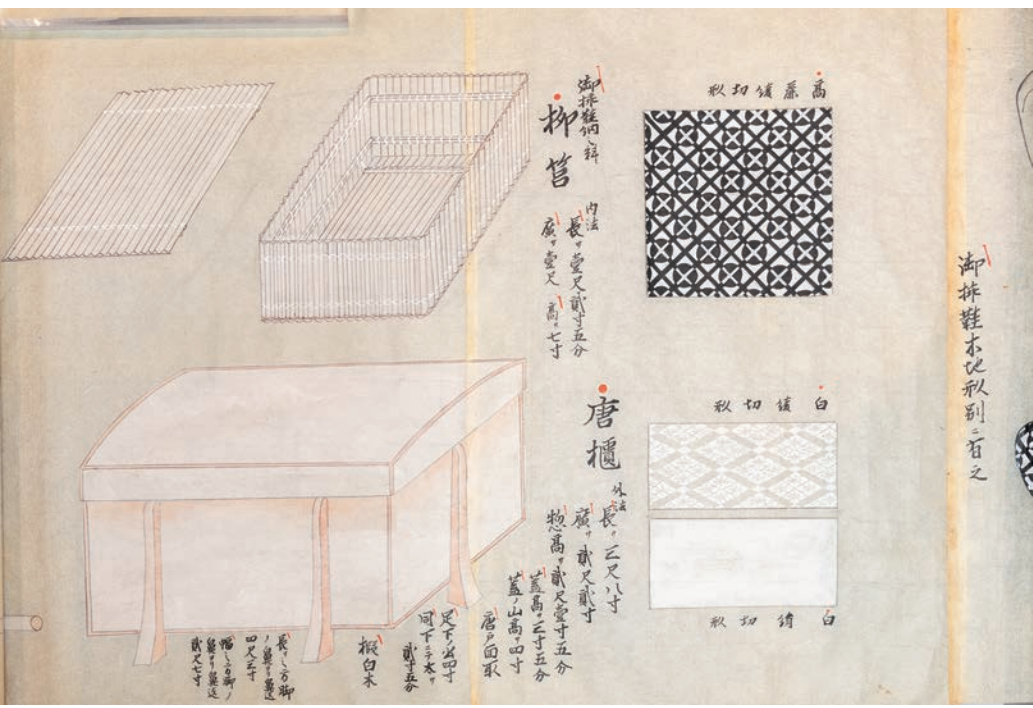 御挿鞋木地形別ニ有之
萬藤綾切形
白綾切形
白綺切形
御挿鞋納ノ料
柳筥
内法
長サ壹尺貳寸五分
廣サ壹尺 高サ七寸
唐櫃
外法
長サ三尺八寸
廣サ貳尺貳寸
惣高サ貳尺壹寸五分
蓋高サ三寸五分
蓋ノ山高サ四寸
唐戸面取
足下ノ出四寸
同下ニテ太サ
貳寸五分
檜白木
長サ之方脚
ノ鼻ヨリ鼻迄
四尺三寸
幅之方脚ノ
鼻ヨリ鼻迄
貳尺七寸